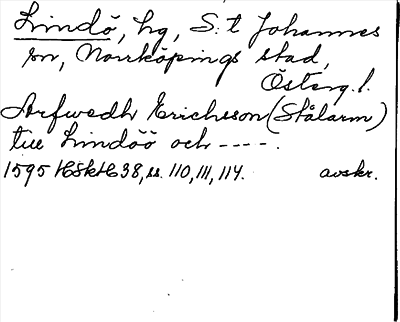 Lindö, hg, S:t Johannes
sn, Norrköpings stad,
Österg.l.
Arfwedh Erichsson (Stålarm)
till Lindöö och ----.
1595 HSkH 38, ss. 110, 111, 114. avskr.